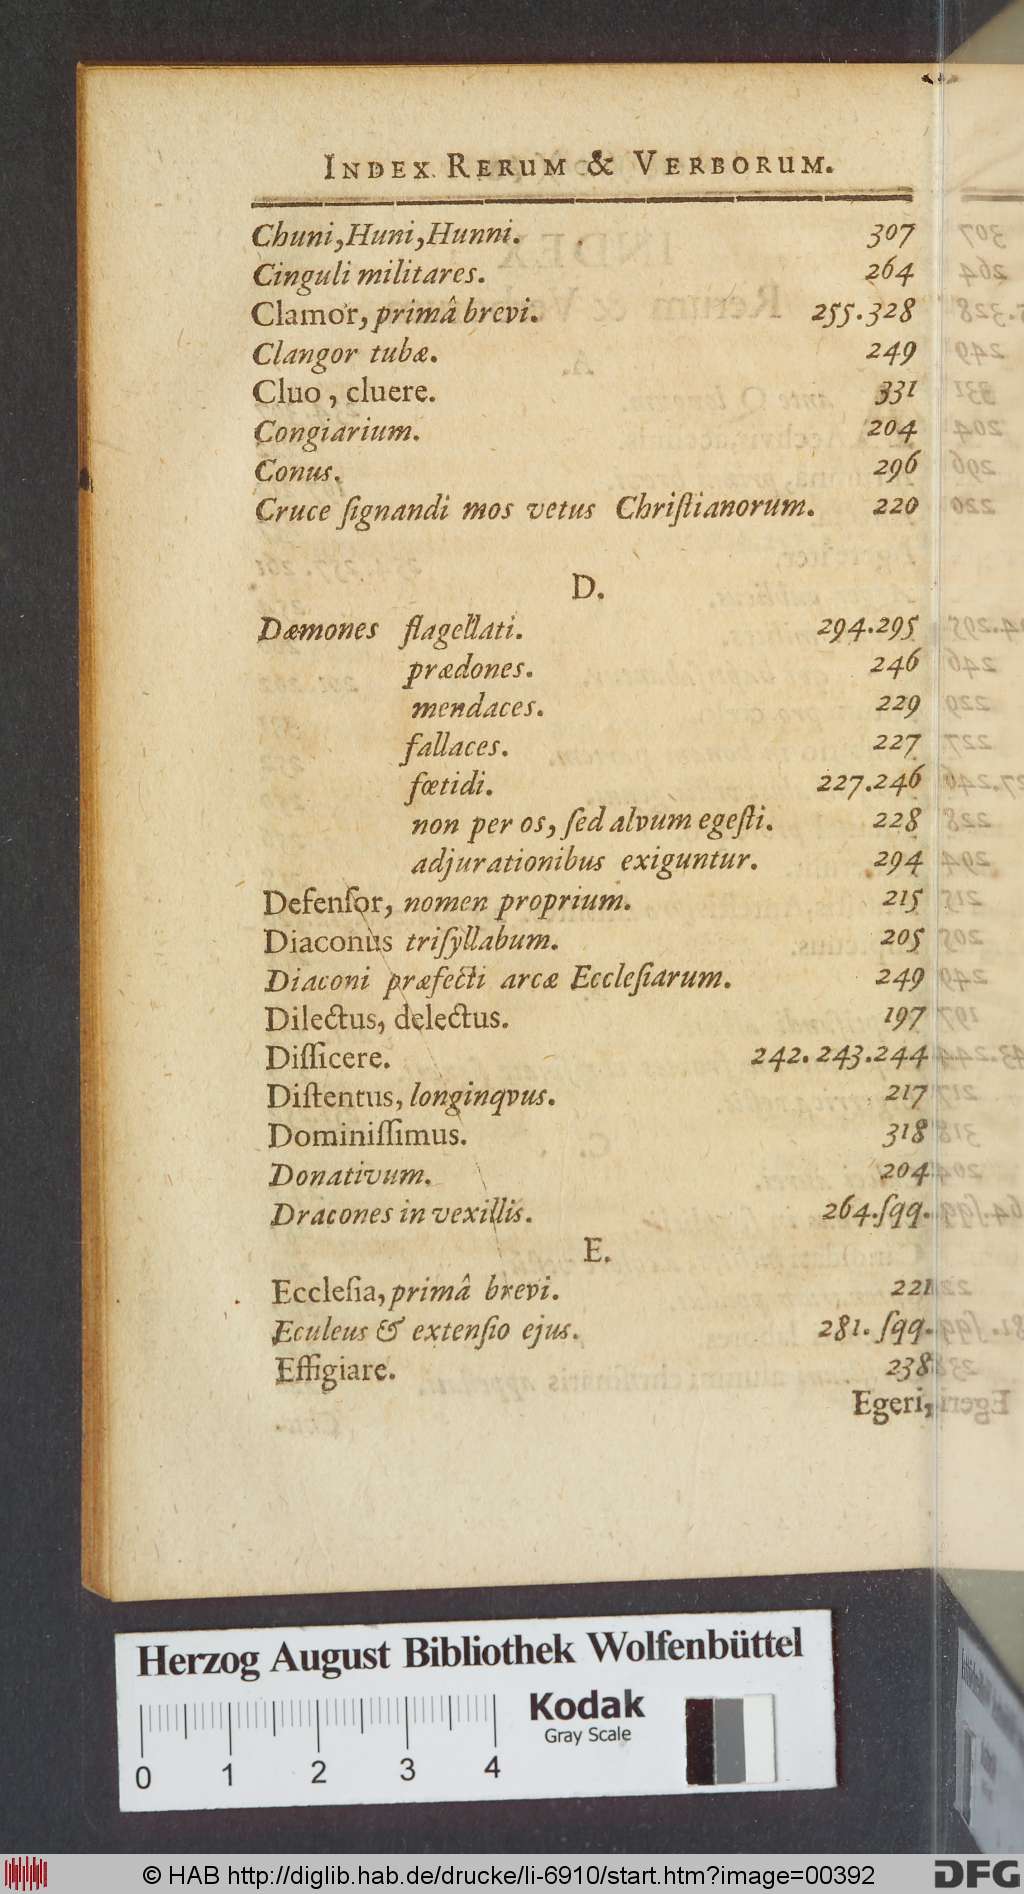 INDEX RERUM & VERBORUM.
Chuni, Huni, Hunni. 307
Cinguli militares. 264
Clamor, primâ brevi. 255.328
Clangor tubæ. 249
Cluo, cluere. 331
Congiarium. 204
Conus. 296
Cruce ſignandi mos vetus Chriſtianorum. 220
D.
Dæmones flagellati. 294.295
prædones. 246
mendaces. 229
fallaces. 227
fœtidi. 227.246
non per os, ſed alvum egeſti. 228
adjurationibus exiguntur. 294
Defenſor, nomen proprium. 215
Diaconus triſyllabum. 205
Diaconi præfecti arcæ Eccleſiarum. 249
Dilectus, delectus. 197
Diſſicere. 242.243.244
Diſtentus, longinqvus. 217
Dominiſſimus. 318
Donativum. 204
Dracones in vexillis. 264.ſqq.
E.
Eccleſia, primâ brevi. 221
Eculeus & extenſio ejus. 281. ſqq.
Effigiare. 238
Egeri,
Herzog August Bibliothek Wolfenbüttel
Kodak
Gray Scale
0 1 2 3 4
© HAB http://diglib.hab.de/drucke/li-6910/start.htm?image=00392
DFG